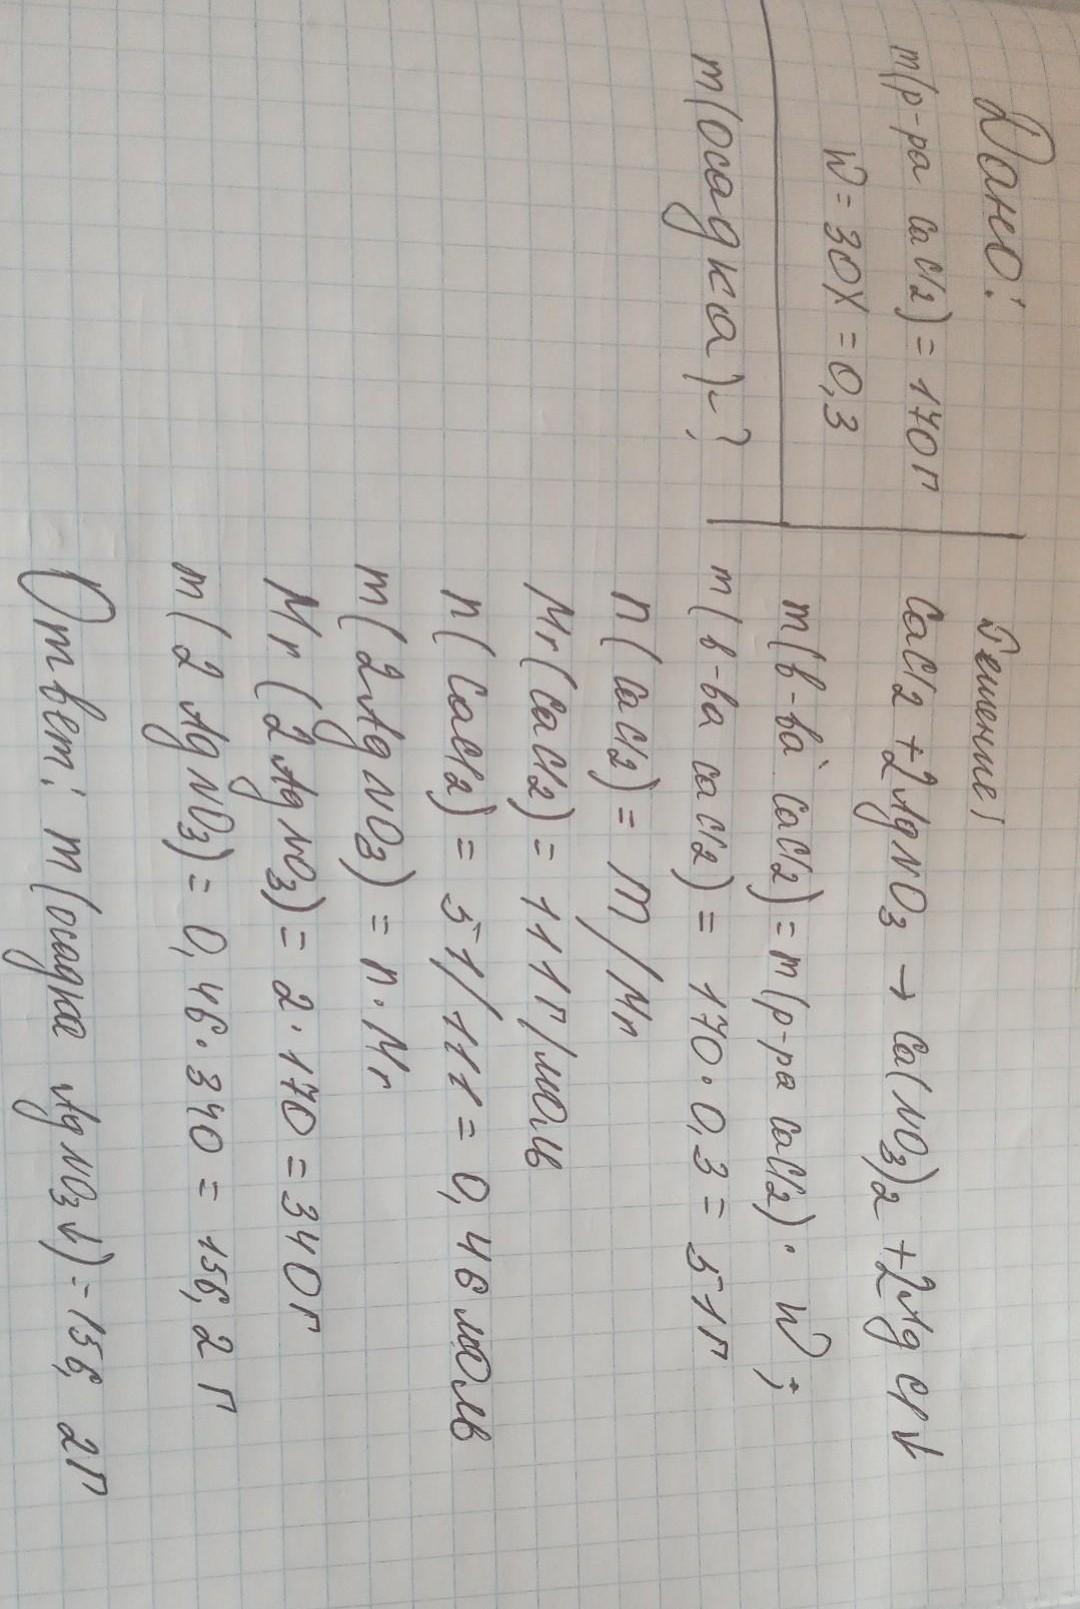 Дано:
m(р-ра CaCl2) = 170 г
W = 30% = 0,3
m(осадка) - ?
Решение:
CaCl2 + 2AgNO3 → Ca(NO3)2 + 2AgCl↓
m(в-ва CaCl2) = m(р-ра CaCl2) · W;
m(в-ва CaCl2) = 170 · 0,3 = 51 г
n(CaCl2) = m/Mr
Mr(CaCl2) = 111 г/моль
n(CaCl2) = 51/111 = 0,46 моль
m(2AgNO3) = n · Mr
Mr(2AgNO3) = 2 · 170 = 340 г
m(2AgNO3) = 0,46 · 340 = 156,2 г
Ответ: m(осадка AgNO3↓) = 156,2 г